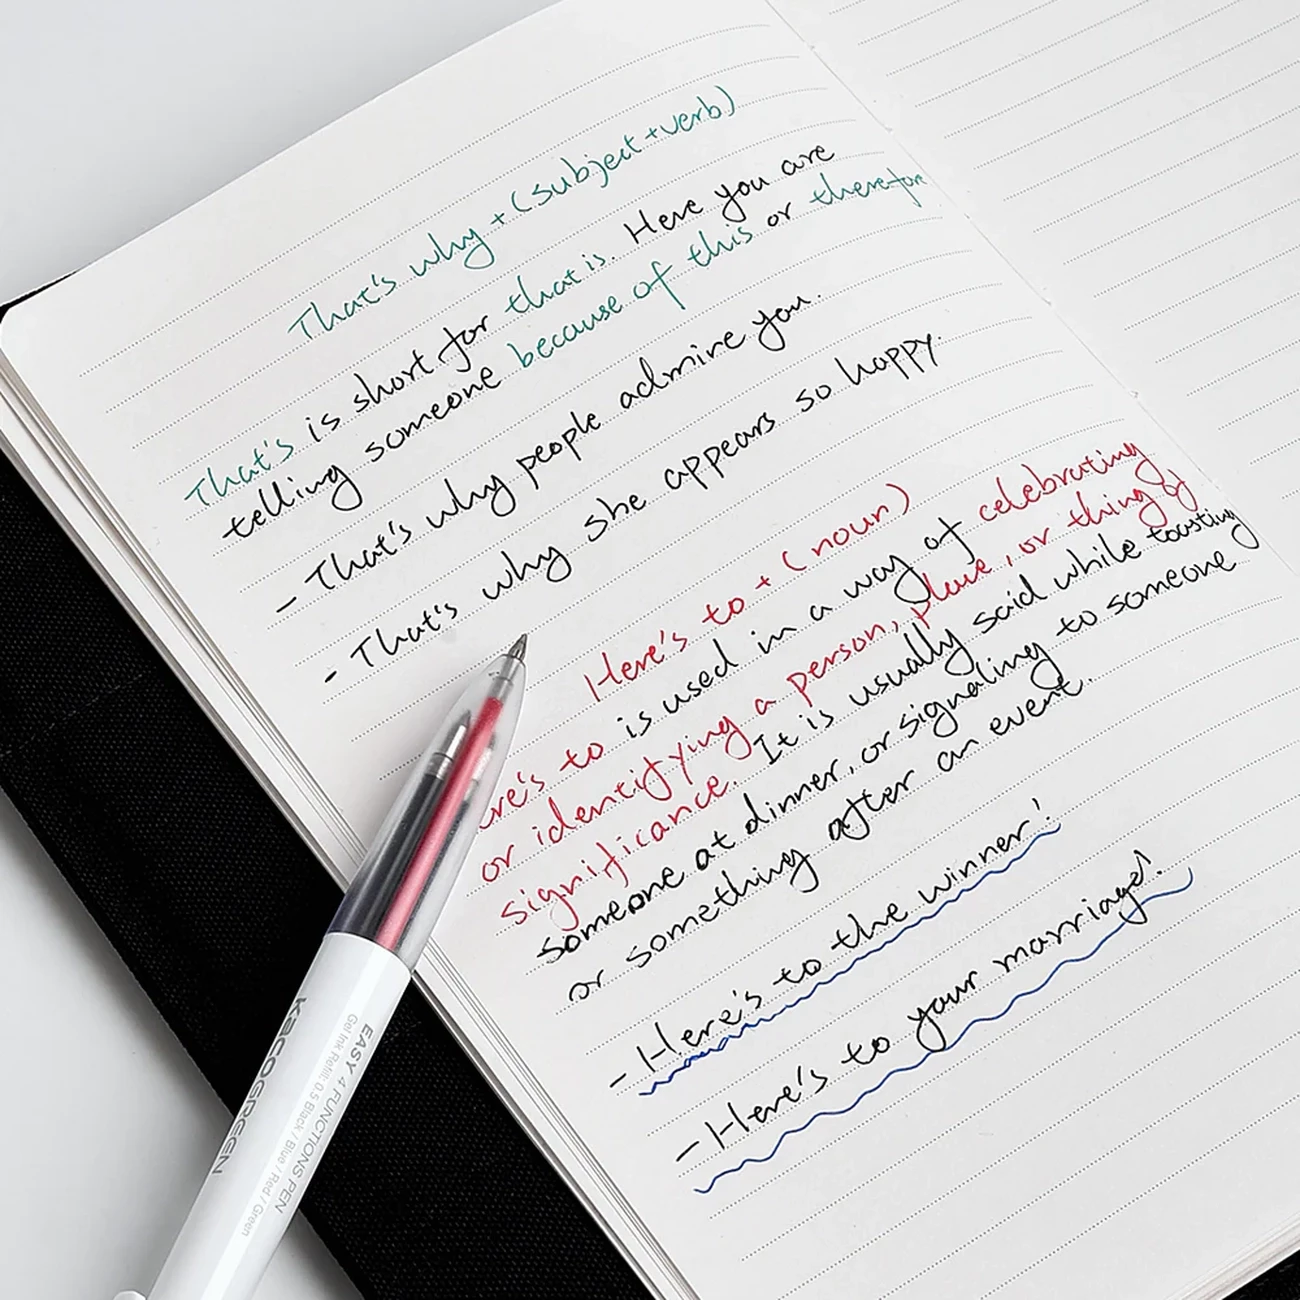 That's why + (subject + verb)
That's is short for that is. Here you are
telling someone because of this or therefore
- That's why people admire you.
- That's why she appears so happy.
Here's to + (noun)
ere's to is used in a way of celebrating
or identifying a person, place, or thing of
significance. It is usually said while toasting
someone at dinner, or signaling to someone
or something after an event.
- Here's to the winner!
- Here's to your marriage!
KACOGREEN
EASY 4 FUNCTIONS PEN
Gel Ink Refill 0.5 Black / Blue / Red / Green